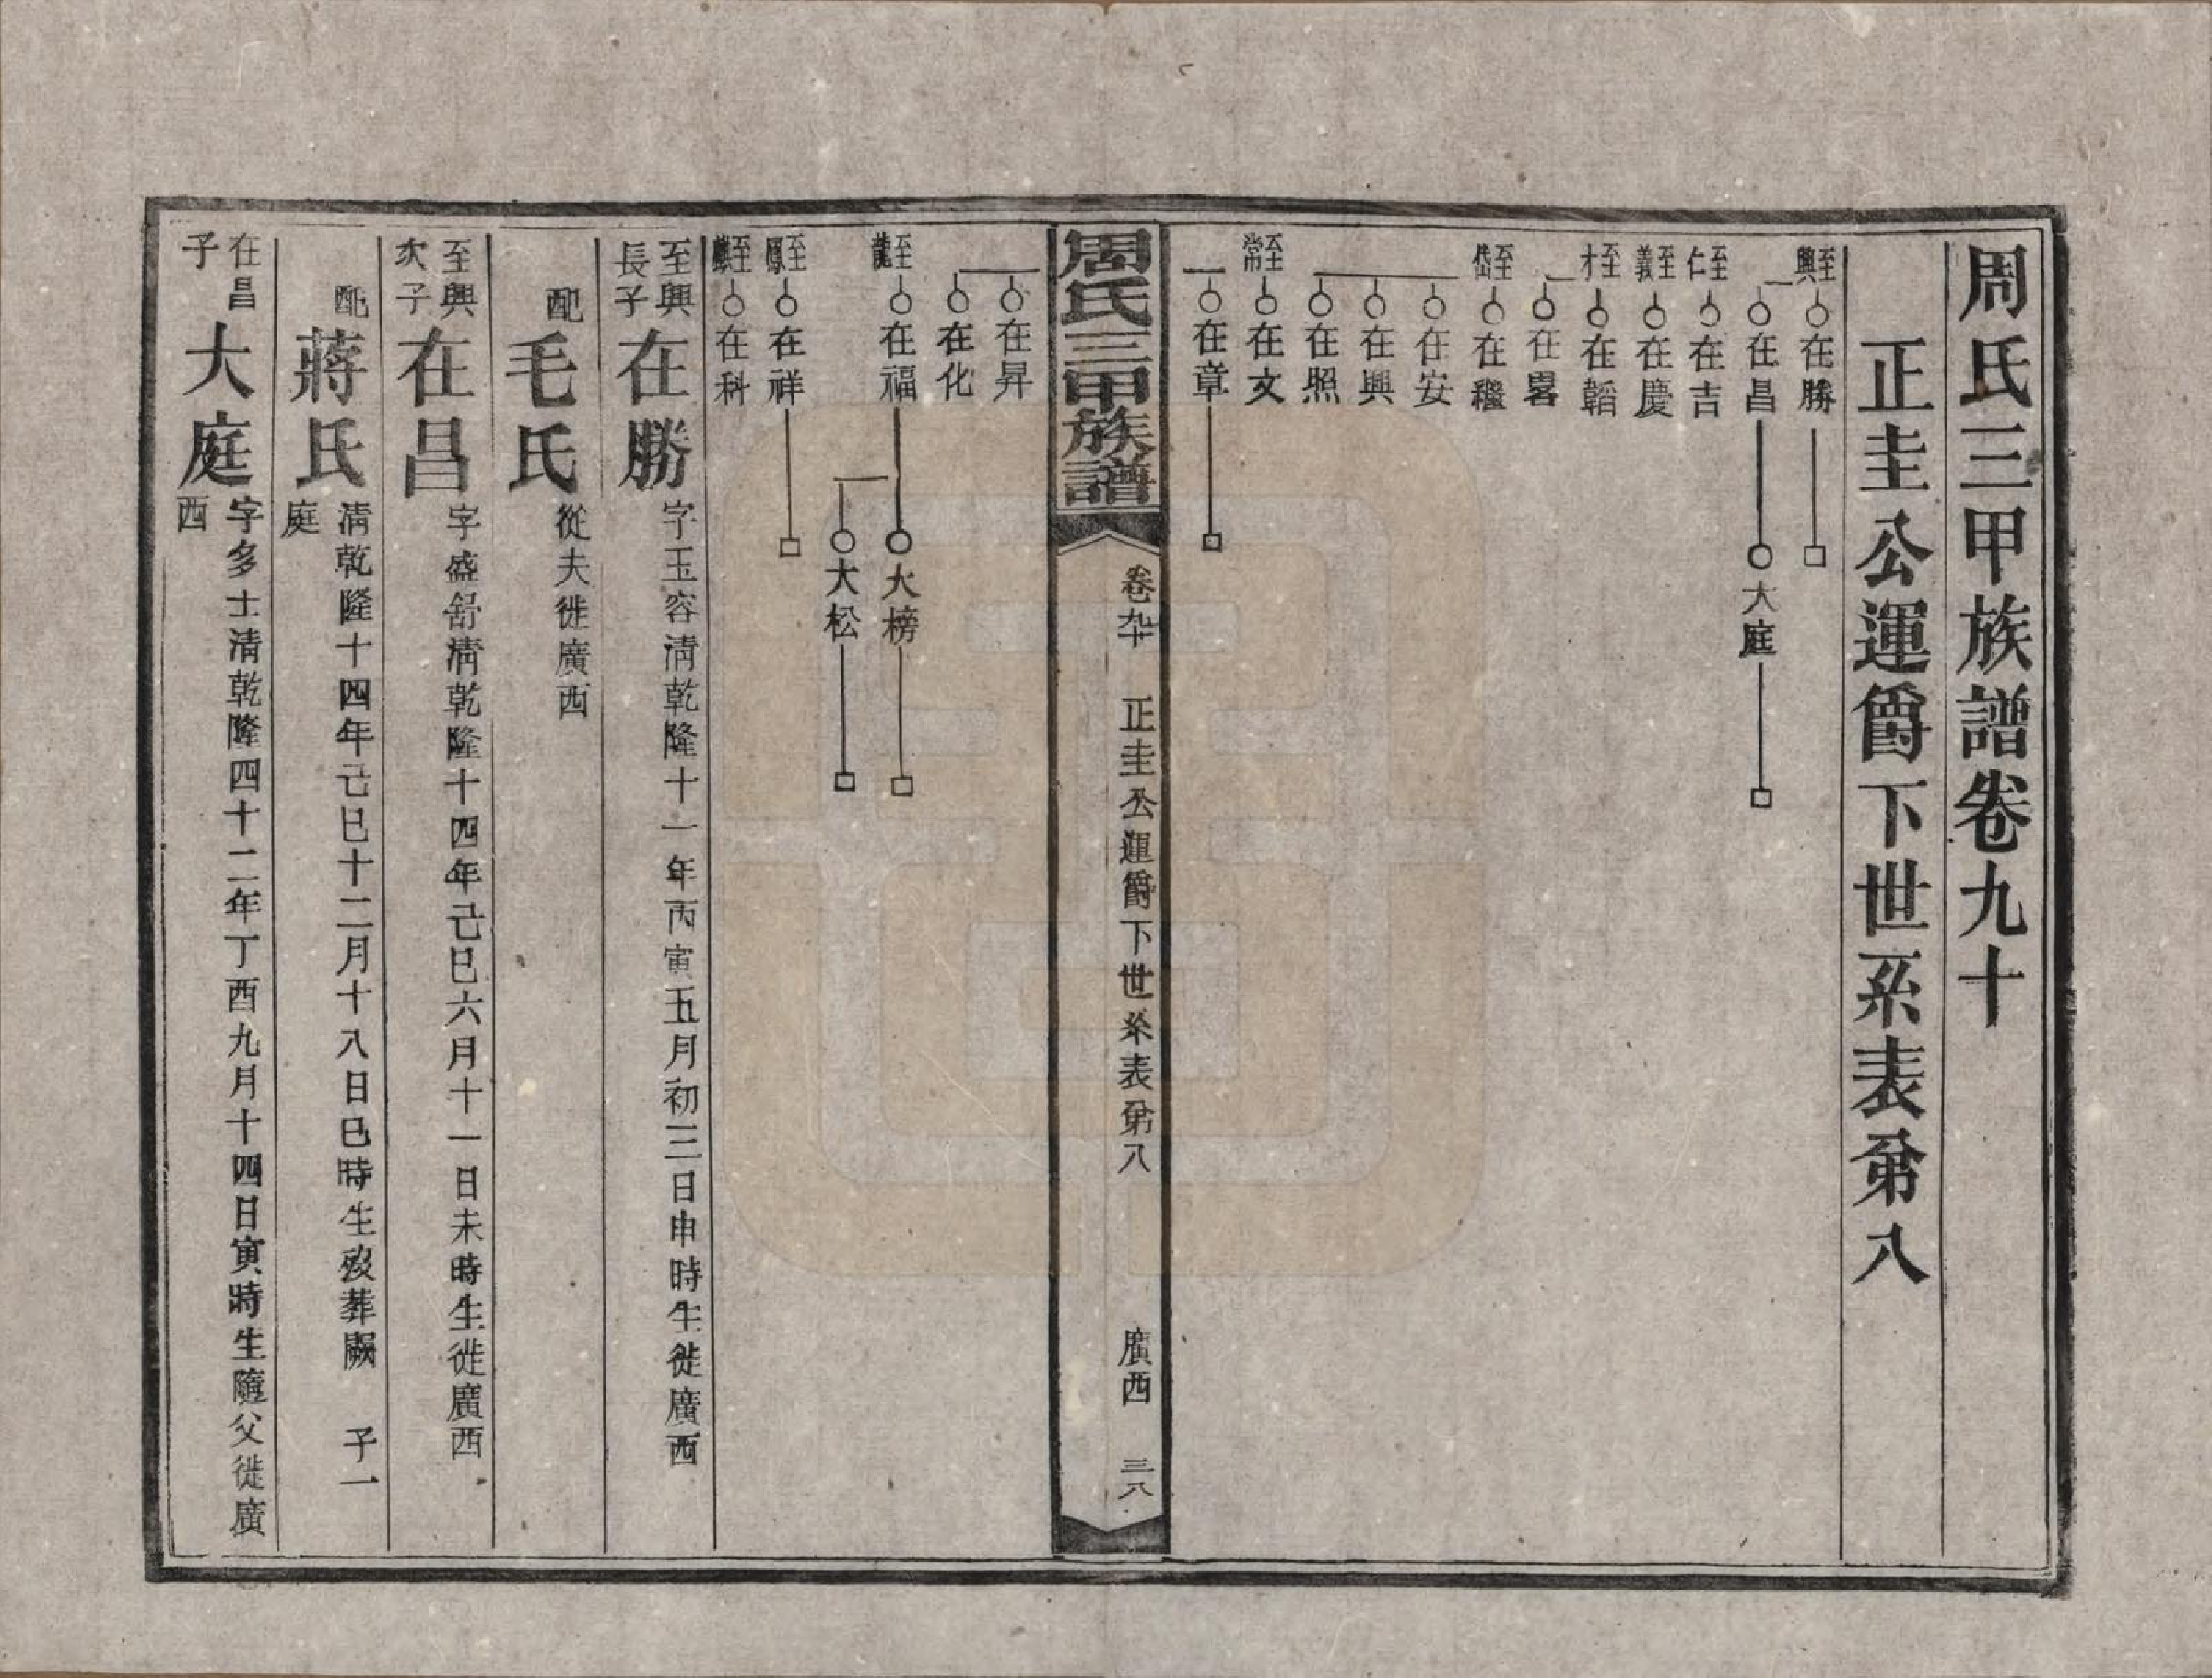 周氏三甲族譜卷九十
正圭公運爵下世系表第八
至興 在勝
在昌 大庭
至仁 在吉
至義 在慶
至才 在韜
在畧
至岱 在繼
在安
在興
在照
至常 在文
在章
周氏三甲族譜 卷九十 正圭公運爵下世系表第八 廣西 三八
在昇
在化
至龍 在福 大榜
大松
至鳳 在祥
至麟 在科
至興長子 在勝 字玉容清乾隆十一年丙寅五月初三日申時生徙廣西
配 毛氏 從夫徙廣西
至興次子 在昌 字盛舒清乾隆十四年己巳六月十一日未時生徙廣西
配 蔣氏 清乾隆十四年己巳十二月十八日巳時生歿葬闕 子一
庭
在昌子 大庭 字多士清乾隆四十二年丁酉九月十四日寅時生隨父徙廣
西